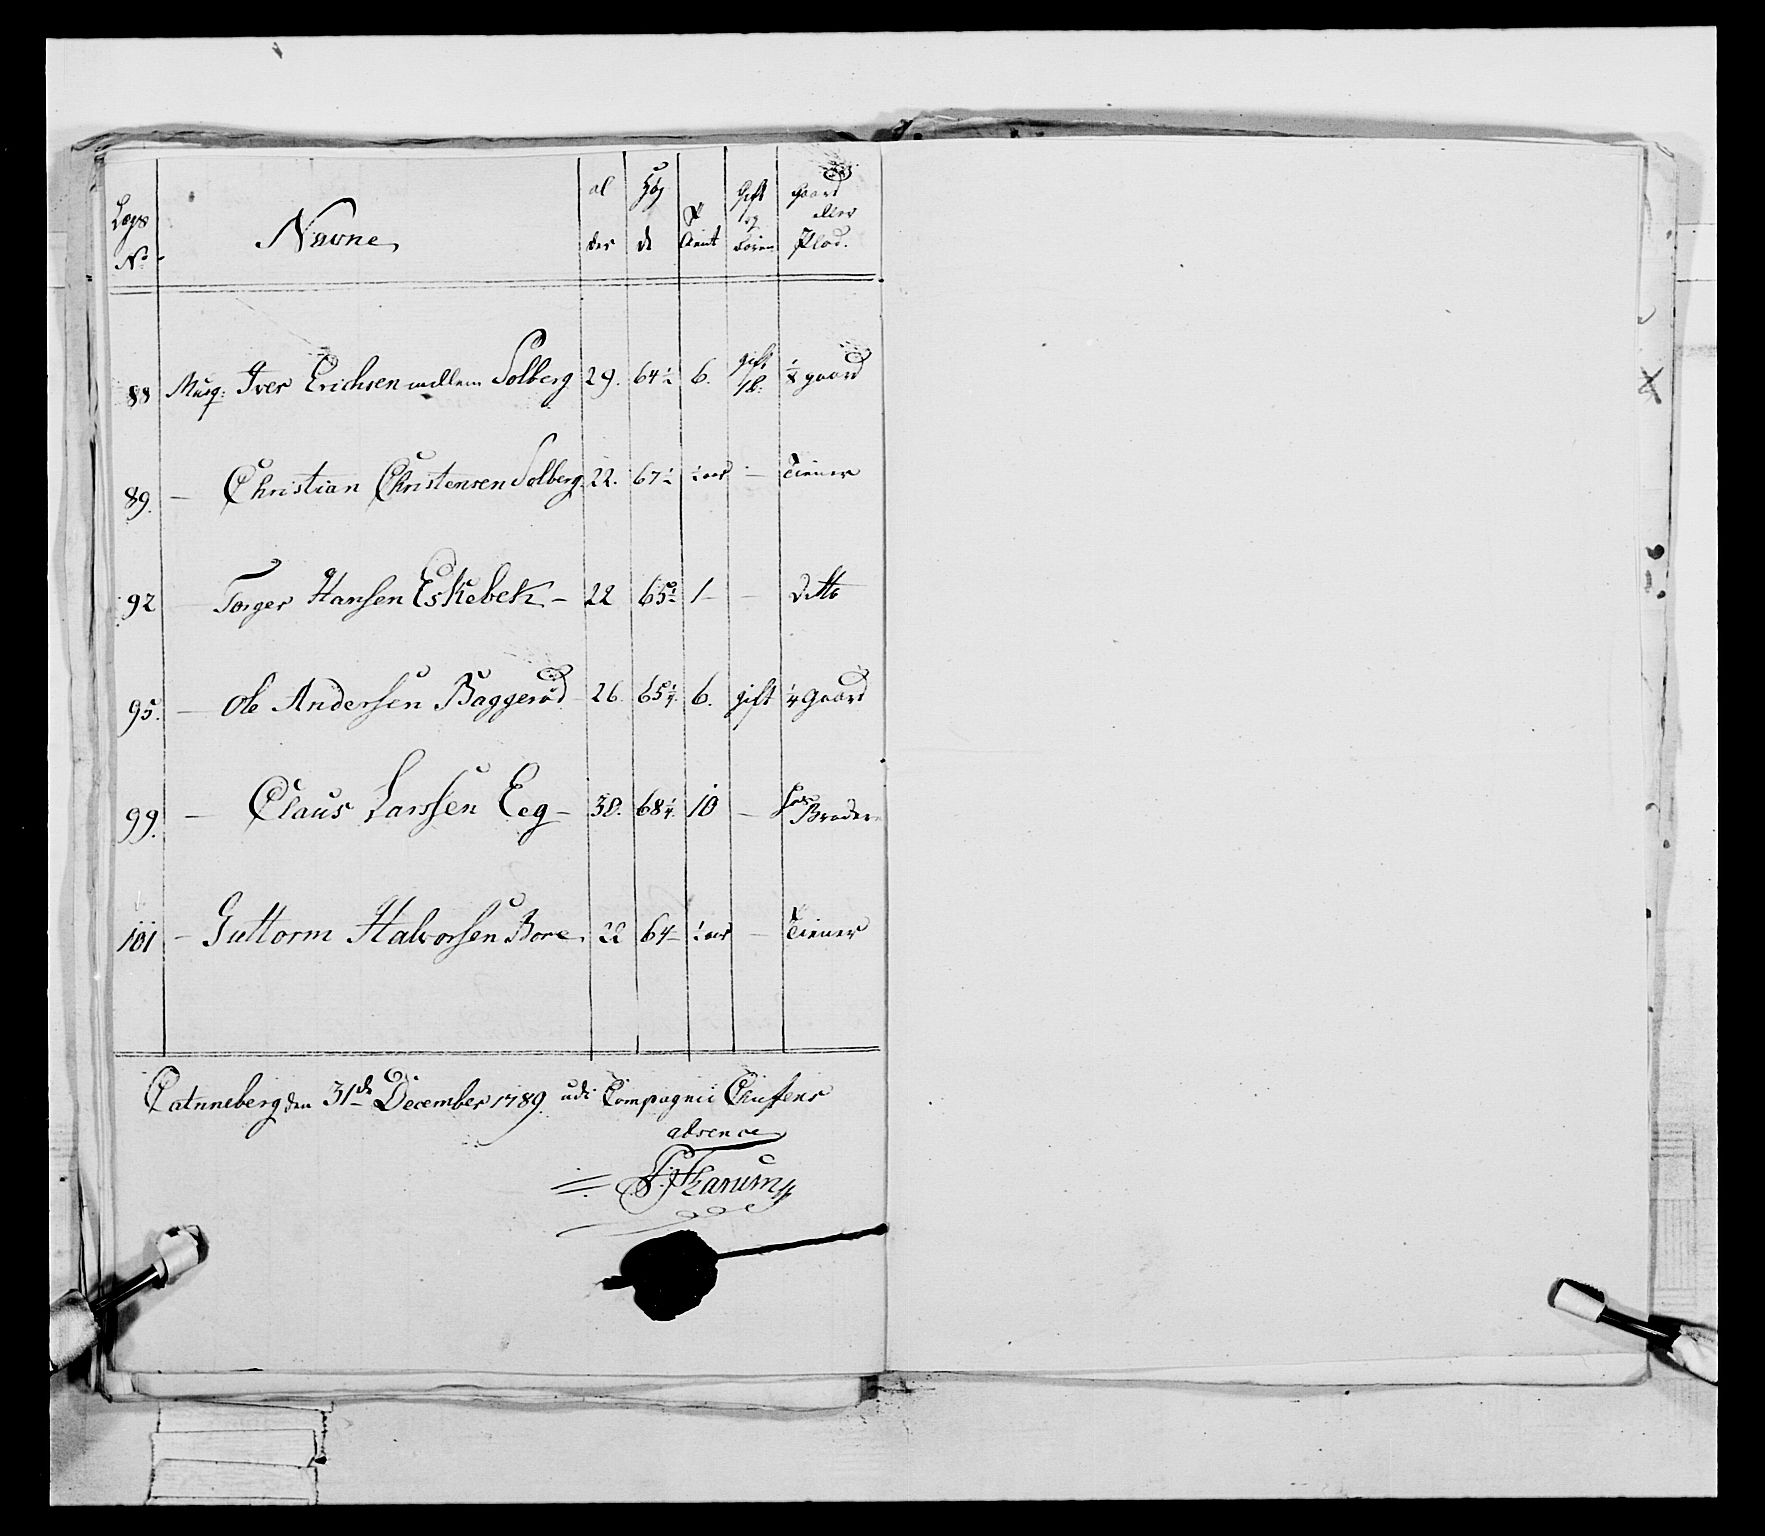 Legs No Navne al der Høg de Tient Gift og Børn Gaard eller Plad.
88 Musq: Iver Erichsen mellem Solberg 29. 64½ 6. gift 1 B: ½ gaard
89. — Christian Christensen Solberg. 22. 67½ ½ aar — Tiener
92 — Torger Hansen Eskebek — 22 65¾ 1 — — ditto
95. — Ole Andersen Baggerød 26. 65¼. 6. gift ¼ Gaard
99. — Claus Larssen Eeg — 38. 68¼. 10 — hos Broder
101 — Guttorm Halvorsen Bore. 22 64 — ½ aar — Tiener
den 31de December 1789. udi Compagnie Chefens
absence